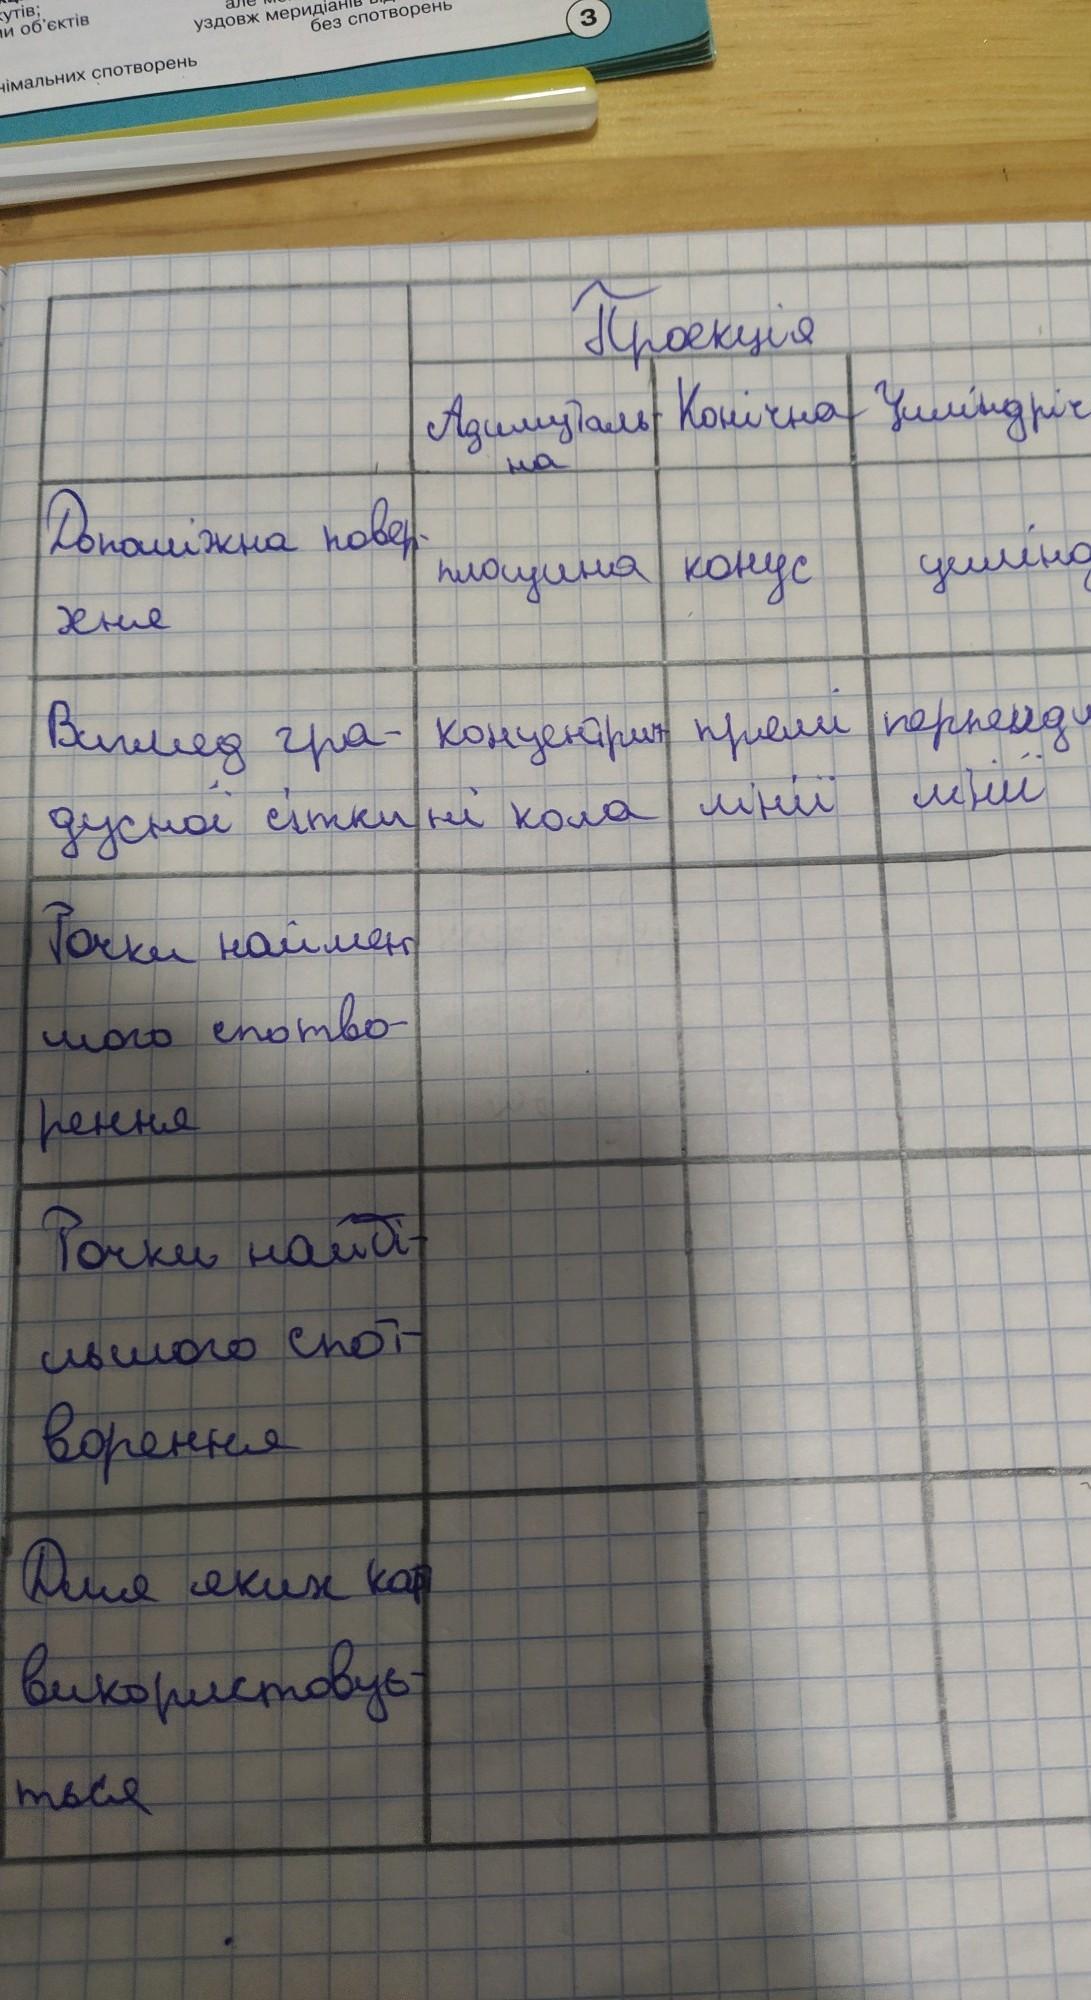 кутів;
ми об'єктів
німальних спотворень
уздовж меридіанів
без спотворень
3
Проекція
Азимуталь
на
Конічна
Циліндріч
Допоміжна повер-
хня
площина
конус
цилінд
Вигляд гра-
дусної сітки
концентрич
ні кола
прямі
лінії
перпенди
лінії
Точки наймен
шого спотво-
рення
Точки найбі-
льшого спот-
ворення
Для яких кар
використовує-
ться